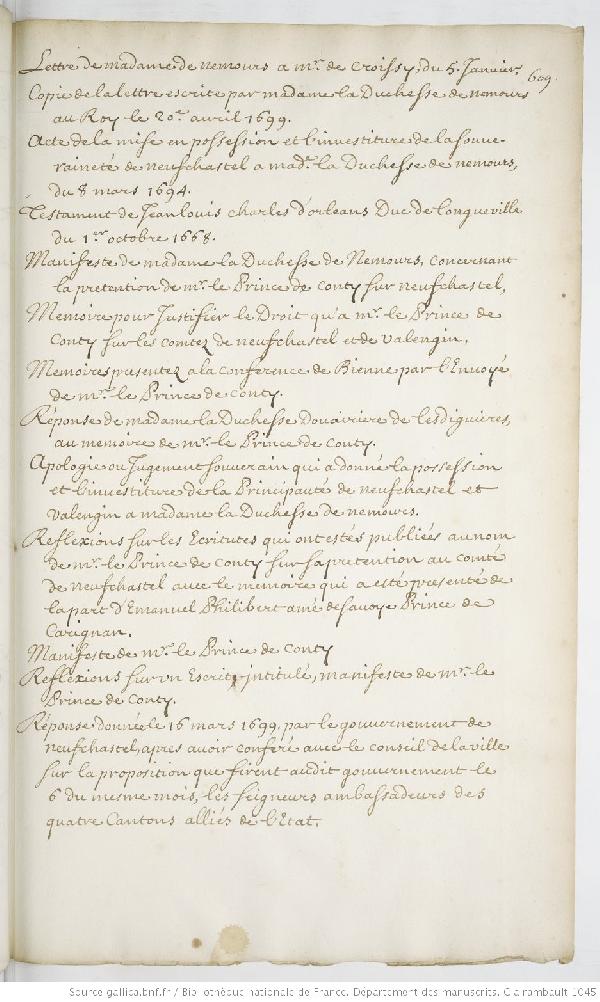 Lettre de madame de nemours a mr. de Croissy, du 5. Janvier.
609.
Copie de la lettre escrite par madame la Duchesse de nemours
au Roy le 20e. avril 1699.
Acte de la mise en possession et l'investiture de la souve-
raineté de neufchastel a made. la Duchesse de nemours,
du 8 mars 1694.
Testament de Jean louis charles d'orleans Duc de longueville
du 1er. octobre 1668.
Manifeste de madame la Duchesse de Nemours, concernant
la pretention de mr. le Prince de Conty sur neufchastel,
Memoire pour Justifier le Droit qu'a mr. le Prince de
Conty sur les comtez de neufchastel et de valengin,
Memoires presentez a la conference de Bienne par l'Envoyé
de mr. le Prince de Conty.
Réponse de madame la Duchesse Douairiere de lesdiguieres,
au memoire de mr. le Prince de Conty.
Apologie ou Jugement souverain qui a donné la possession
et l'investiture de la Principauté de neufchastel et
valengin a madame la Duchesse de nemours.
Reflexions sur les Ecritures qui ont estés publiées au nom
de mr. le Prince de Conty sur sa pretention au comté
de neufchastel avec le memoire qui a esté presenté de
la part d'Emanuel Philibert amé de savoye Prince de
Carignan.
Manifeste de mr. le Prince de Conty
Reflexions sur un Escrit jntitulé, manifeste de mr. le
Prince de Conty.
Réponse donnée le 16 mars 1699. par le gouvernement de
neufchastel, apres avoir conferé avec le conseil de la ville
sur la proposition que firent audit gouvernement le
6 du mesme mois, les seigneurs ambassadeurs des
quatre Cantons alliés de l'Etat.
Source gallica.bnf.fr / Bibliothèque nationale de France. Département des manuscrits. Clairambault 1045